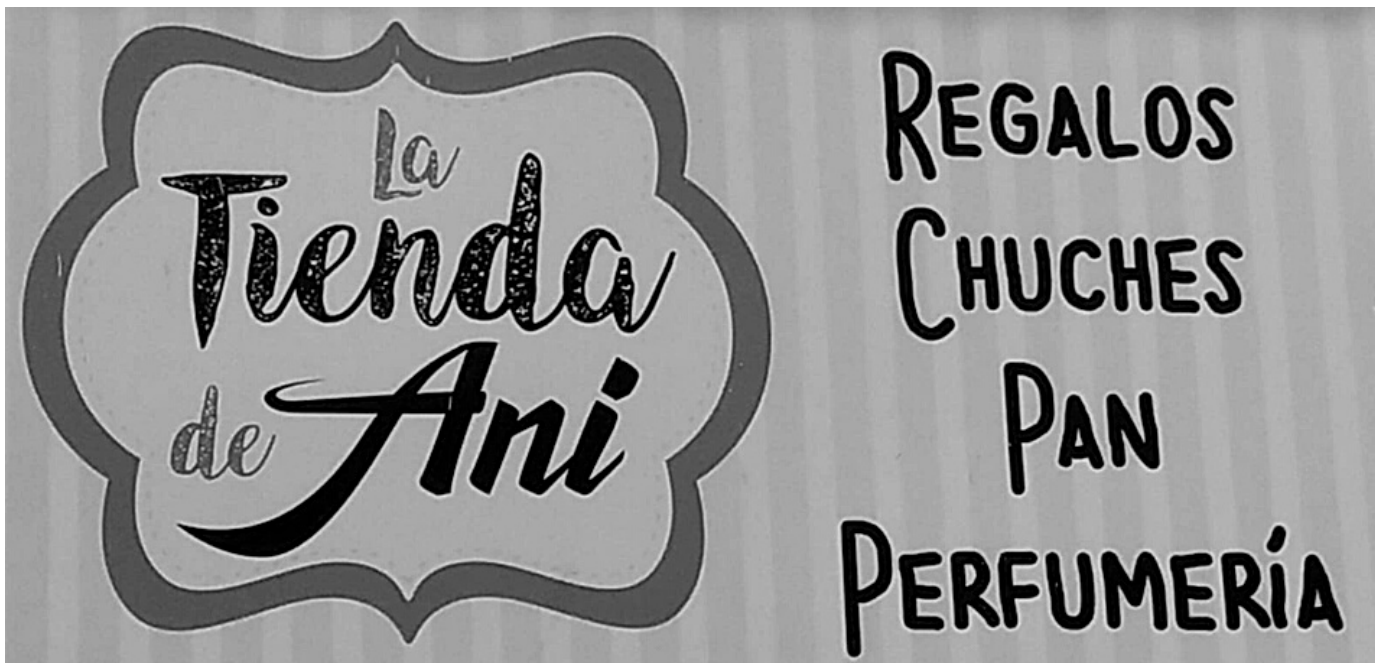 La
Tienda
de Ani
REGALOS
CHUCHES
PAN
PERFUMERÍA